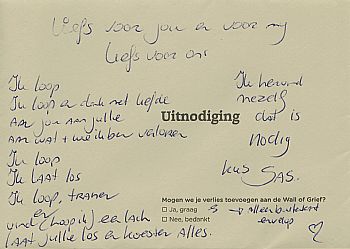 Liefs voor jou en voor mij
Liefs voor ons
Ik loop
Ik loop en denk met liefde
aan jou aan jullie
aan wat we ben verloren
Ik loop
Ik laat los
Ik loop, tranen
en
vind (hoop ik) een lach
Laat jullie los en koester alles.
Uitnodiging
Ik hervind
mezelf
dat is
nodig
kus SAS.
Mogen we je verlies toevoegen aan de Wall of Grief?
Ja, graag
Nee, bedankt